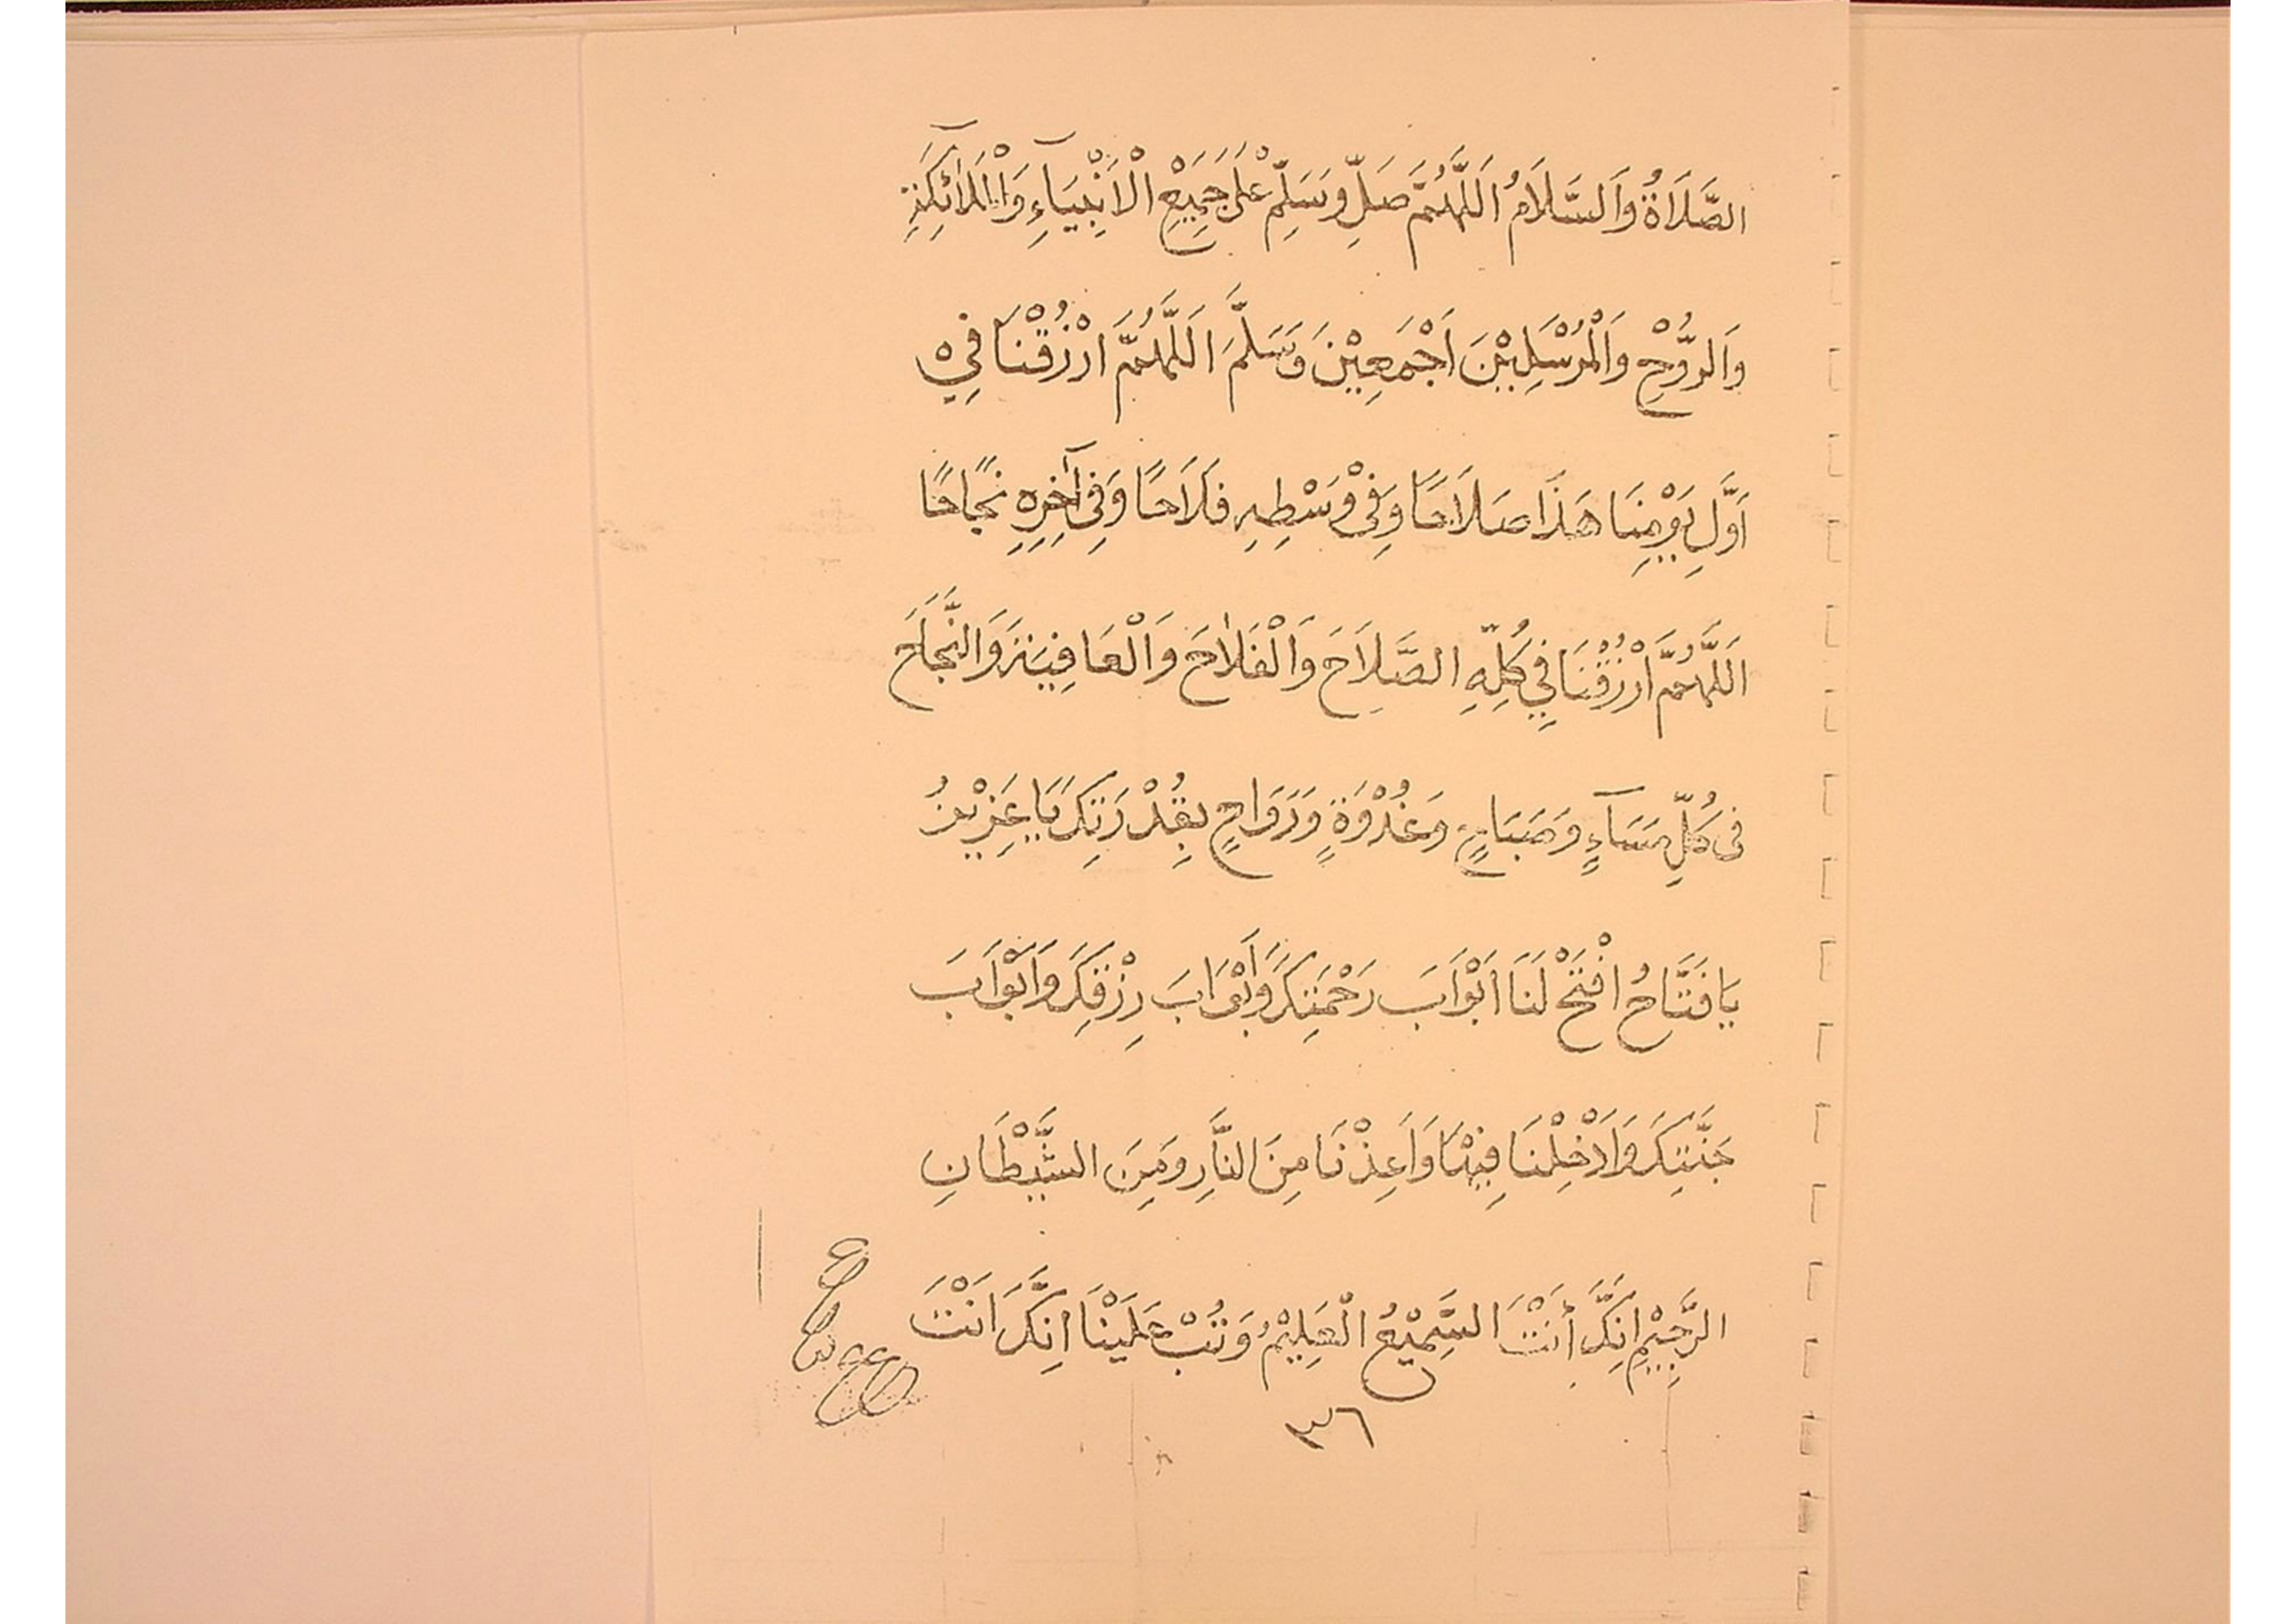 الصَّلَاةُ وَالسَّلَامُ اَللَّهُمَّ صَلِّ وَسَلِّمْ عَلٰى جَمِيْعِ الْاَنْبِيَآءِ وَالْمَلَآئِكَةِ
وَالرُّوْحِ وَالْمُرْسَلِيْنَ اَجْمَعِيْنَ وَسَلَّمَ اَللَّهُمَّ ارْزُقْنَا فِيْ
اَوَّلِ يَوْمِنَا هَذَا صَلَاحًا وَفِىْ وَسْطِهِ فَلَاحًا وَفِى آخِرِهِ نَجَاحًا
اَللَّهُمَّ ارْزُقْنَا فِي كُلِّهِ الصَّلَاحَ وَالْفَلَاحَ وَالْعَافِيَةَ وَالنَّجَاحَ
فِى كُلِّ مَسَآءٍ وَصَبَاحٍ وَغُدْوَةٍ وَرَوَاحٍ بِقُدْرَتِكَ يَا عَزِيْزُ
يَا فَتَّاحُ افْتَحْ لَنَا اَبْوَابَ رَحْمَتِكَ وَاَبْوَابَ رِزْقِكَ وَاَبْوَابَ
جَنَّتِكَ وَاَدْخِلْنَا فِيْهَا وَاَعِذْنَا مِنَ النَّارِ وَمِنَ الشَّيْطَانِ
الرَّجِيْمِ اِنَّكَ أَنْتَ السَّمِيْعُ الْعَلِيْمُ وَتُبْ عَلَيْنَا اِنَّكَ اَنْتَ
٣٦